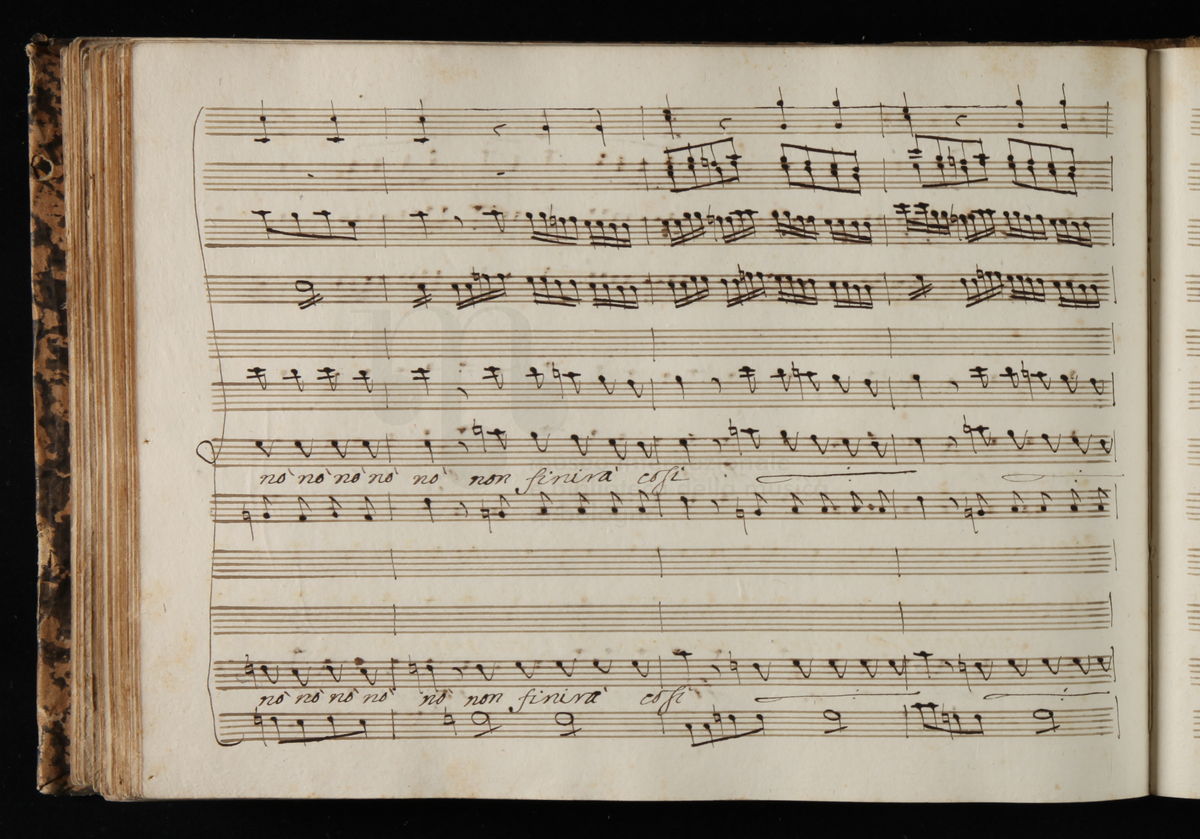 nò nò nò nò nò non finirà cosi
nò nò nò nò nò non finirà cosi